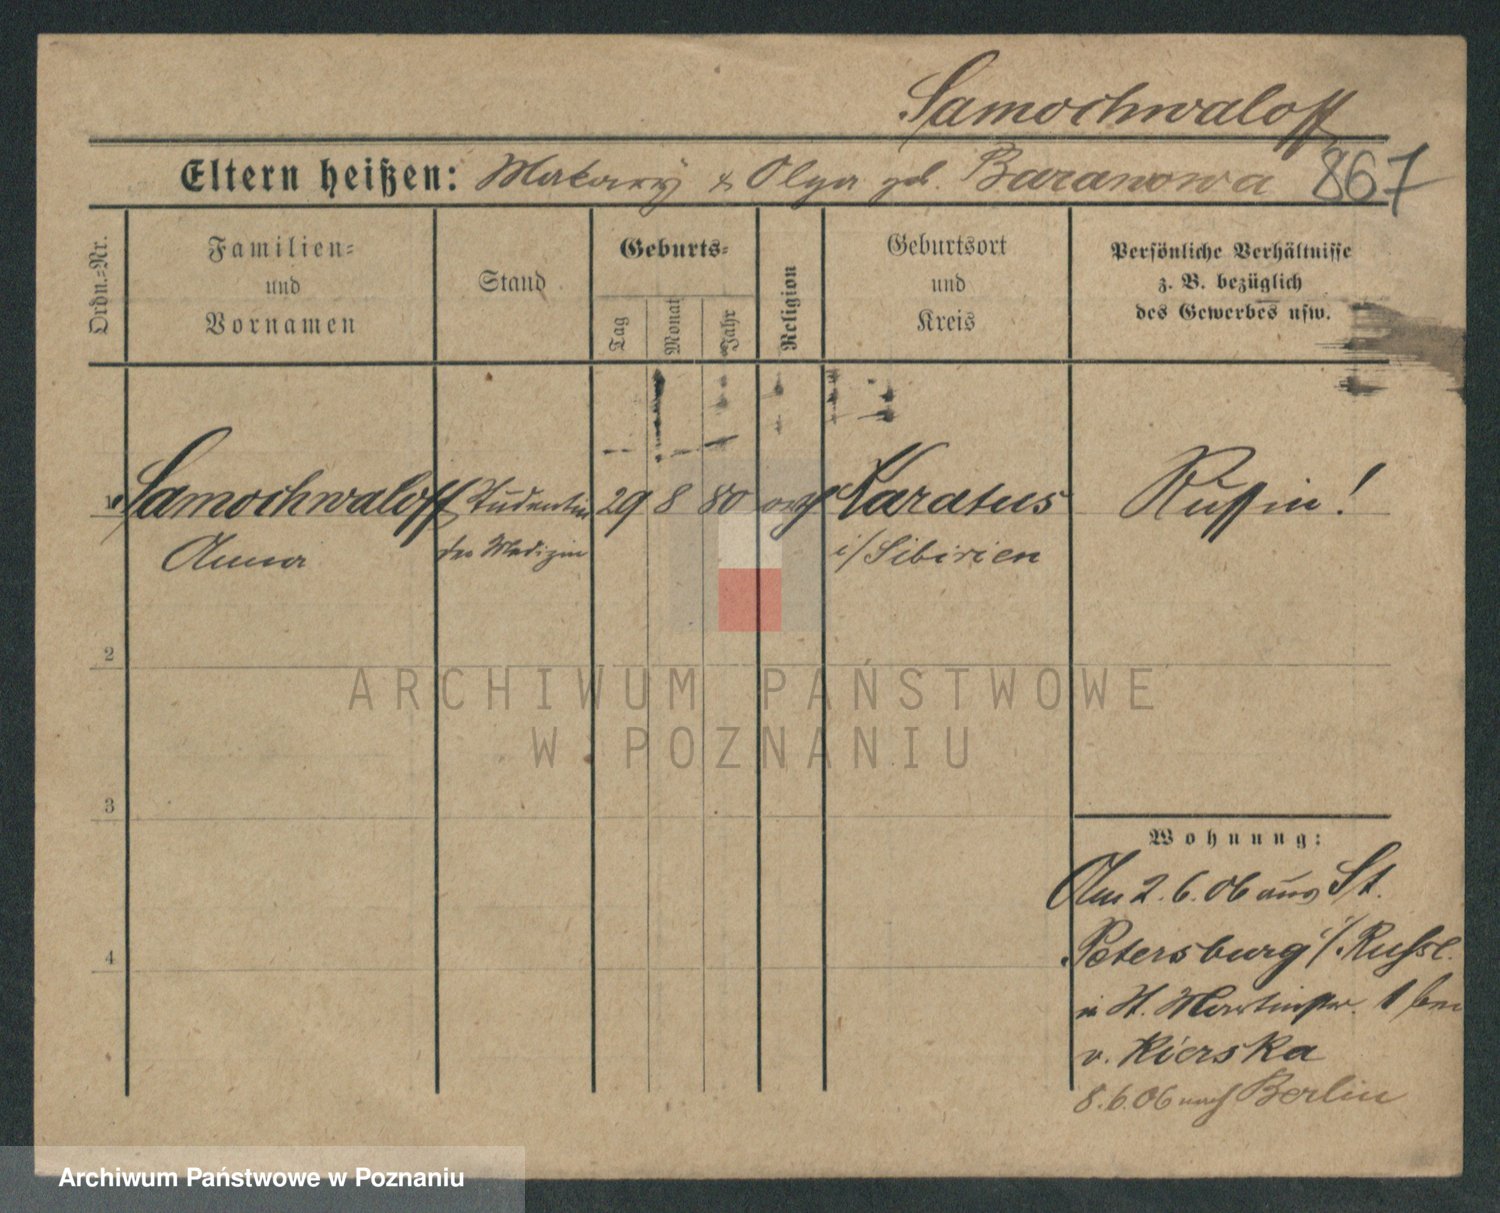 Samochwaloff
Eltern heißen: Makary & Olga geb. Baranowa 867
Ordn.-Nr.
Familien-
und
Vornamen
Stand
Geburts-
Tag
Monat
Jahr
Religion
Geburtsort
und
Kreis
Persönliche Verhältnisse
z. B. bezüglich
des Gewerbes usw.
Samochwaloff Studentin 29 8 80 orth Karatus Russin!
Anna der Medizin i/Sibirien
2
ARCHIWUM PAŃSTWOWE
W POZNANIU
3
Wohnung:
Am 2.6.06 aus St.
Petersburg i/Russl.
in St. Martinstr. 1 bei
v. Kierska
8.6.06 nach Berlin
4
Archiwum Państwowe w Poznaniu